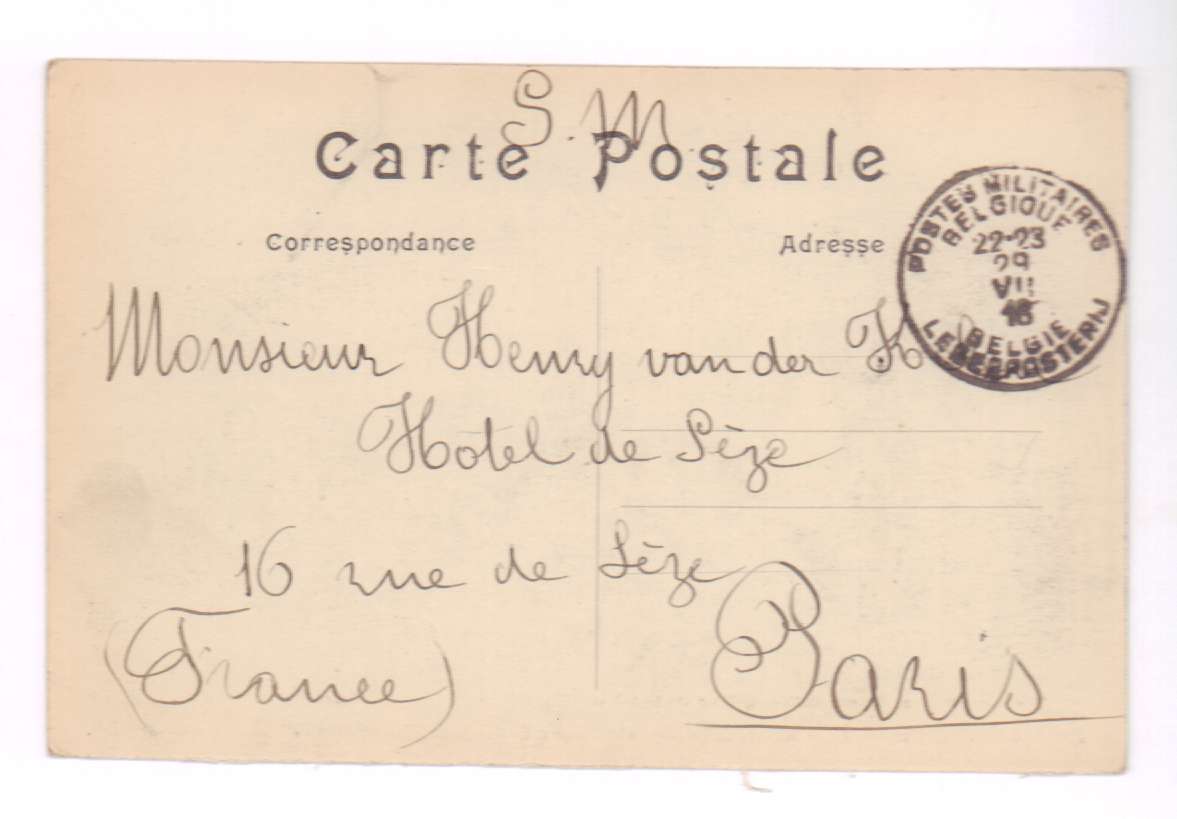 S.M
Carte Postale
Correspondance
Adresse
POSTES MILITAIRES
BELGIQUE
22-23
29
VII
BELGIE
LEGERPOSTERIJ
Monsieur Henry van der
Hôtel de Sèze
16 rue de Sèze
(France)
Paris